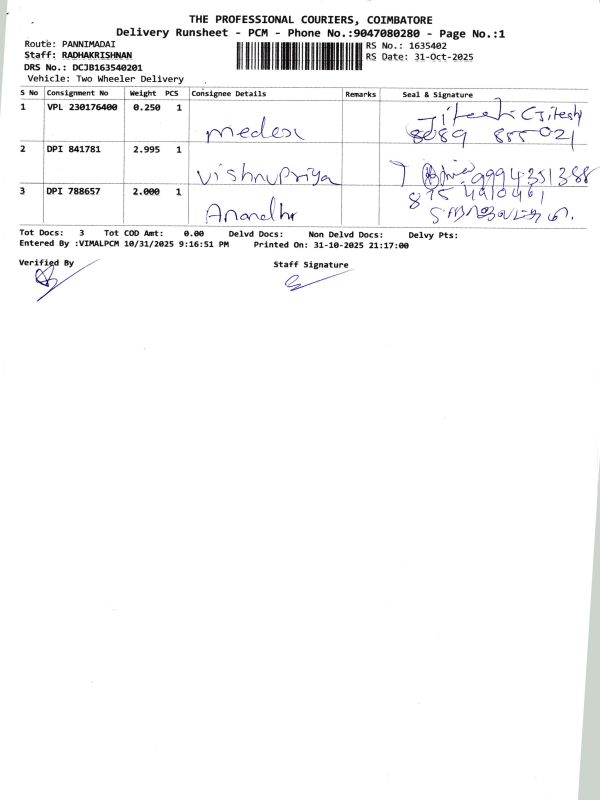 THE PROFESSIONAL COURIERS, COIMBATORE
Delivery Runsheet - PCM - Phone No.:9047080280 - Page No.:1
Route: PANNIMADAI
RS No.: 1635402
Staff: RADHAKRISHNAN
RS Date: 31-Oct-2025
DRS No.: DCJB163540201
Vehicle: Two Wheeler Delivery
S No Consignment No Weight PCS Consignee Details Remarks Seal & Signature
1 VPL 230176400 0.250 1 medesi Jiteesh C Jitesh
8089 855 021
2 DPI 841781 2.995 1 Vishnupriya 9994351388
3 DPI 788657 2.000 1 Anandhr 875 4910461
Tot Docs: 3 Tot COD Amt: 0.00 Delvd Docs: Non Delvd Docs: Delvy Pts:
Entered By :VIMALPCM 10/31/2025 9:16:51 PM Printed On: 31-10-2025 21:17:00
Verified By Staff Signature